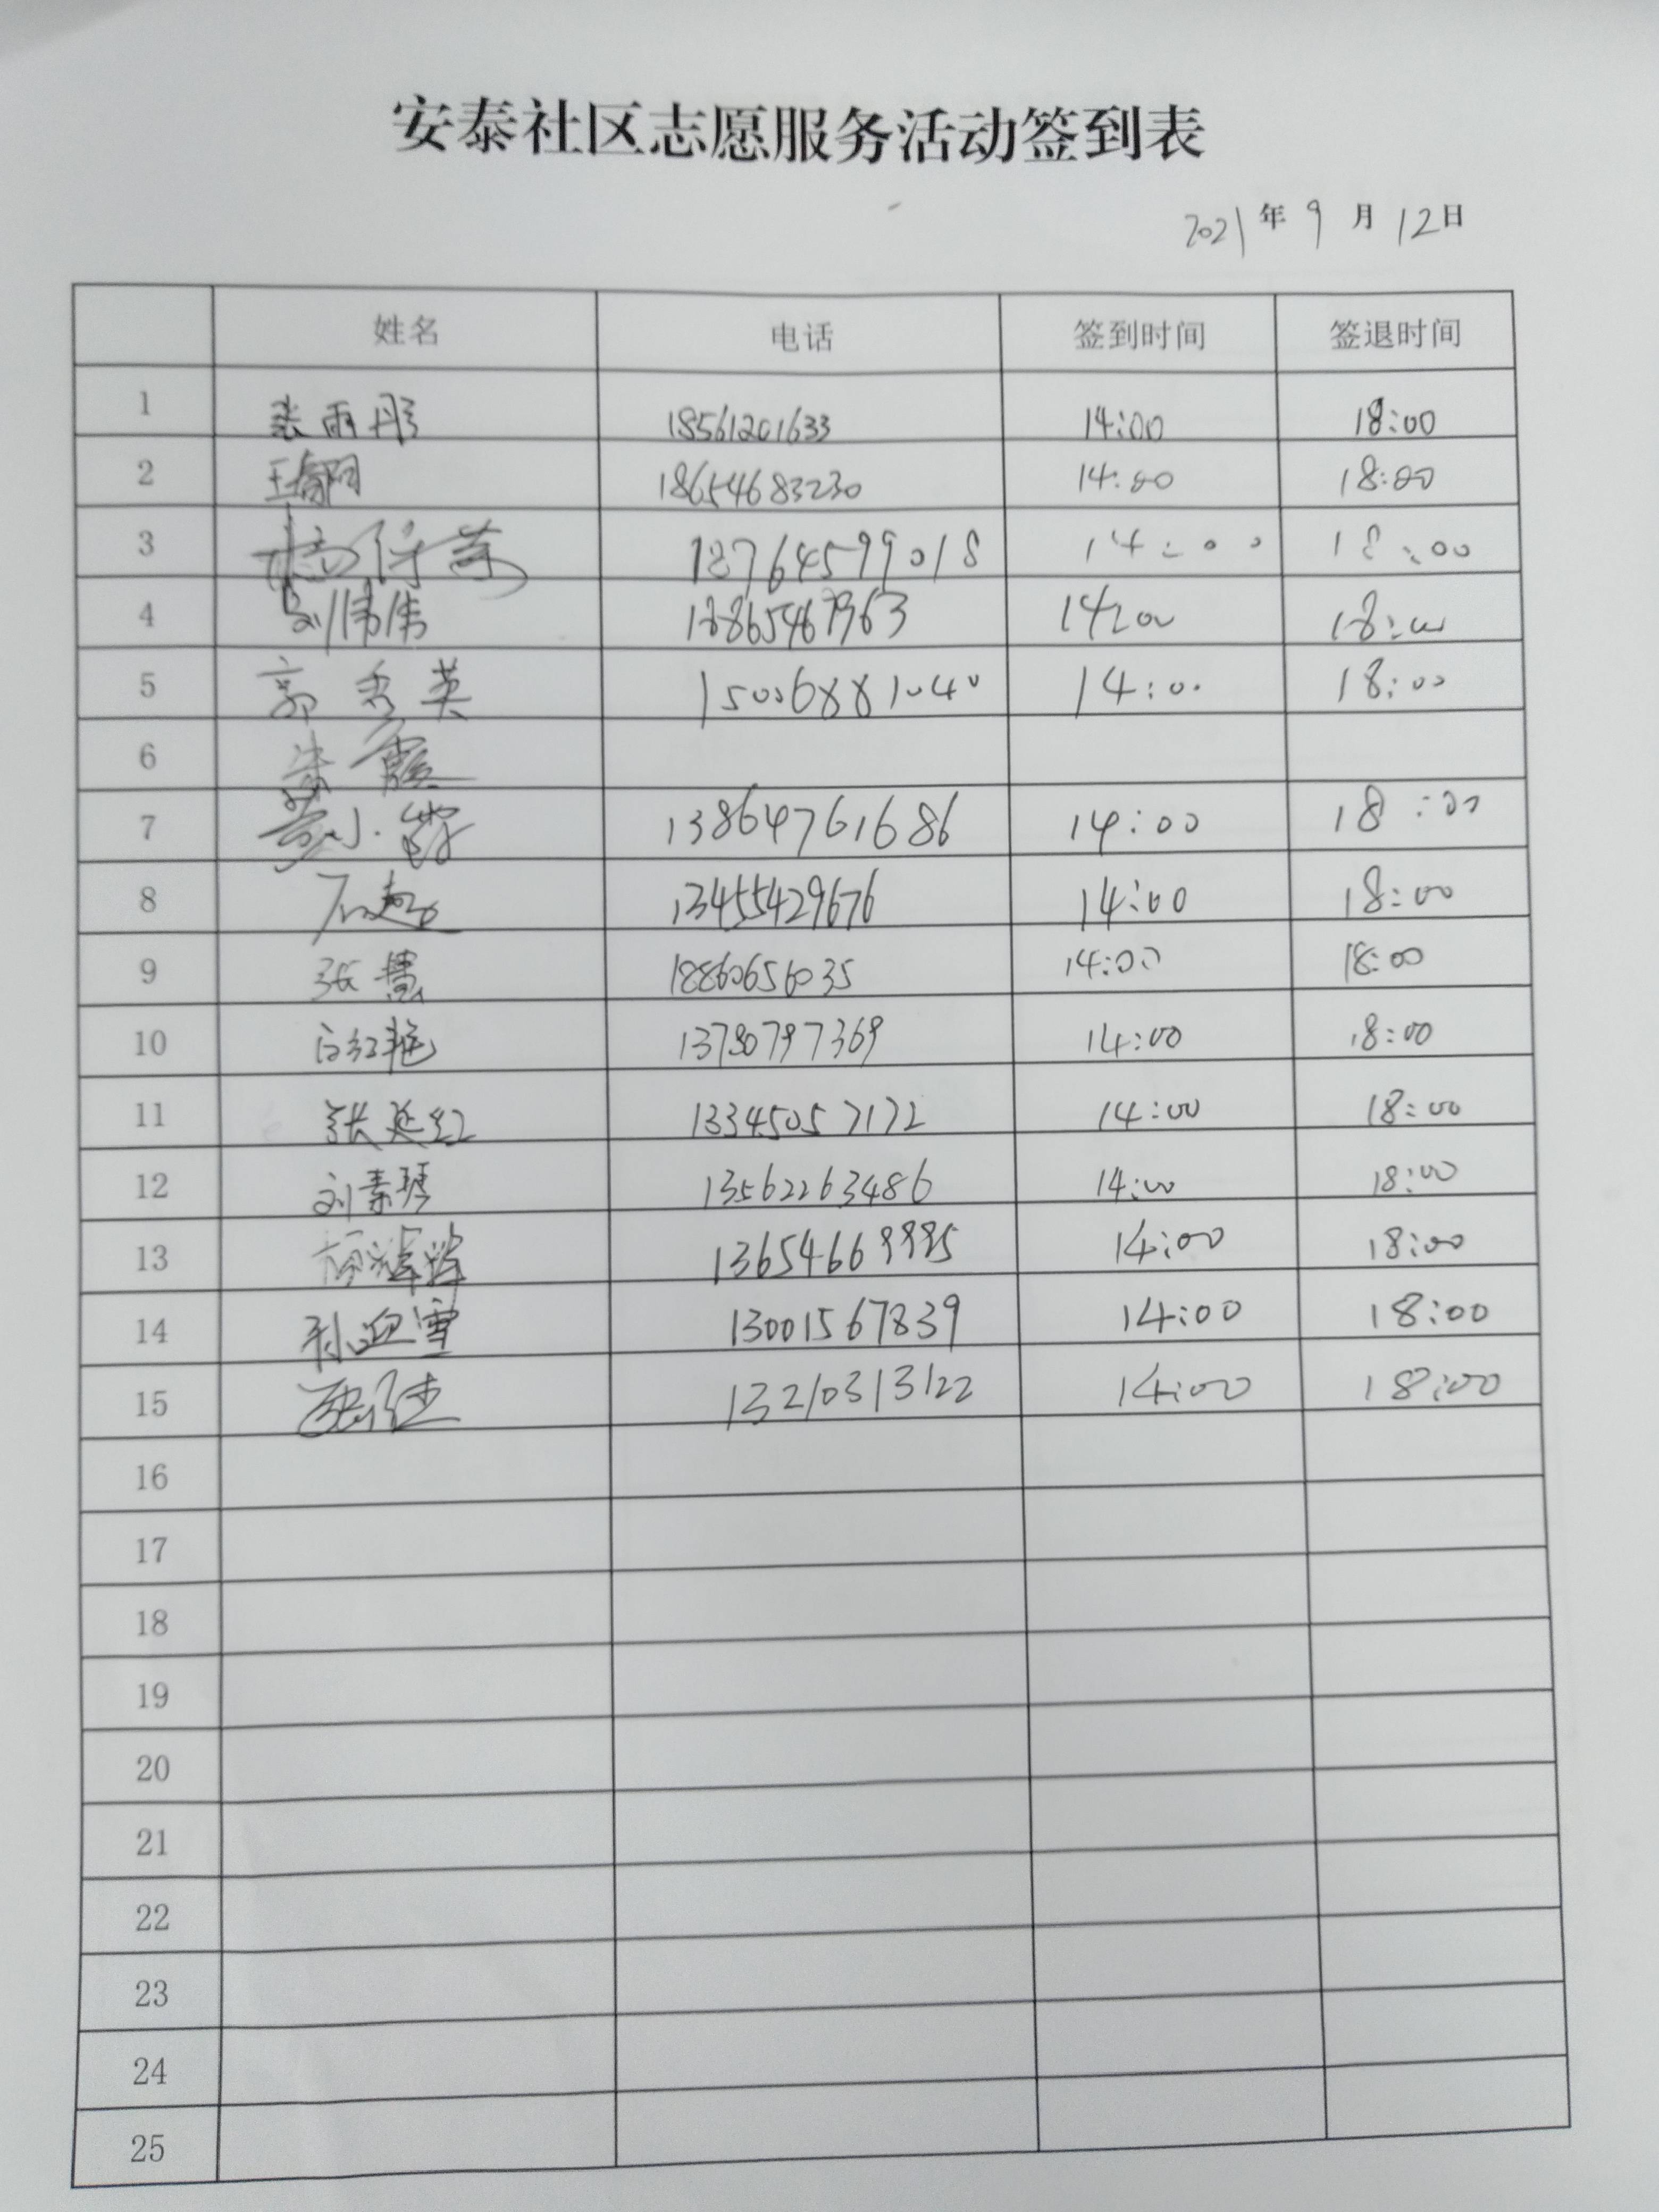 安泰社区志愿服务活动签到表
2021年9月12日
姓名 电话 签到时间 签退时间
1 裴雨彤 18561201633 14:00 18:00
2 18654683230 14:00 18:00
3 18764599018 14:00 18:00
4 刘伟伟 18865467963 14:00 18:00
5 郭秀英 15006881040 14:00 18:00
6 霞
7 13864761686 14:00 18:00
8 石超 13455429676 14:00 18:00
9 张慧 18860656035 14:00 18:00
10 白红艳 13780797369 14:00 18:00
11 张延红 13345057172 14:00 18:00
12 刘素琴 13562263486 14:00 18:00
13 14:00 18:00
14 孙迎雪 13001567839 14:00 18:00
15 13210313122 14:00 18:00
16
17
18
19
20
21
22
23
24
25